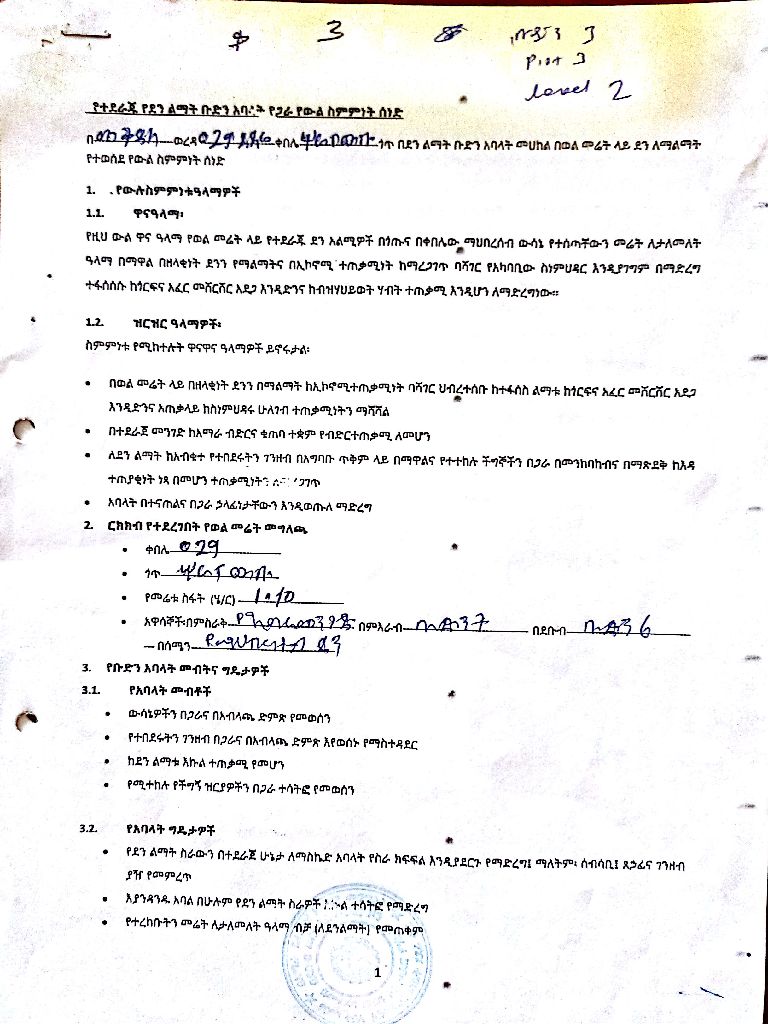 3
Plot 3
Level 2
የተደራጁ የደን ልማት ቡድን አባላት የጋራ የውል ስምምነት ሰነድ
በ ወረዳ 029 ቀበሌ ጎጥ በደን ልማት ቡድን አባላት መሀከል በወል መሬት ላይ ደን ለማልማት
የተወሰደ የውል ስምምነት ሰነድ
1. .የውሉስምምነቱዓላማዎች
1.1. ዋናዓላማ፡
የዚህ ውል ዋና ዓላማ የወል መሬት ላይ የተደራጁ ደን አልሚዎች በጎጡና በቀበሌው ማህበረሰብ ውሳኔ የተሰጣቸውን መሬት ለታለመለት
ዓላማ በማዋል በዘላቂነት ደንን የማልማትና በኢኮኖሚ ተጠቃሚነት ከማረጋገጥ ባሻገር የአካባቢው ስነምህዳር እንዲያገግም በማድረግ
ተፋሰሱ ከጎርፍና አፈር መሸርሸር አደጋ እንዲድንና ከብዝሃህይወት ሃብት ተጠቃሚ እንዲሆን ለማድረግነው።
1.2. ዝርዝር ዓላማዎች፡
ስምምነቱ የሚከተሉት ዋናዋና ዓላማዎች ይኖሩታል፡
• በወል መሬት ላይ በዘላቂነት ደንን በማልማት ከኢኮኖሚተጠቃሚነት ባሻገር ህብረተሰቡ ከተፋሰስ ልማቱ ከጎርፍና አፈር መሸርሸር አደጋ
እንዲድንና አጠቃላይ ከስነምህዳሩ ሁለገብ ተጠቃሚነትን ማሻሻል
• በተደራጀ መንገድ ከአማራ ብድርና ቁጠባ ተቋም የብድርተጠቃሚ ለመሆን
• ለደን ልማት ከአብቁተ የተበደሩትን ገንዘብ በአግባቡ ጥቅም ላይ በማዋልና የተተከሉ ችግኞችን በጋራ በመንከባከብና በማጽደቅ ከእዳ
ተጠያቂነት ነጻ በመሆን ተጠቃሚነትን
• አባላት በተናጠልና በጋራ ኃላፊነታቸውን እንዲወጡለ ማድረግ
2. ርክክብ የተደረገበት የወል መሬት መግለጫ
• ቀበሌ 029
• ጎጥ
• የመሬቱ ስፋት (ሄ/ር) 1.10
• አዋሳኞች፡በምስራቅ በምእራብ በደቡብ ቡድን 6
በሰሜን
3. የቡድን አባላት መብትና ግዴታዎች
3.1. የአባላት መብቶች
• ውሳኔዎችን በጋራና በአብላጫ ድምጽ የመወሰን
• የተበደሩትን ገንዘብ በጋራና በአብላጫ ድምጽ እየወሰኑ የማስተዳደር
• ከደን ልማቱ እኩል ተጠቃሚ የመሆን
• የሚተከሉ የችግኝ ዝርያዎችን በጋራ ተሳትፎ የመወሰን
3.2. የአባላት ግዴታዎች
• የደን ልማት ስራውን በተደራጀ ሁኔታ ለማስኬድ አባላት የስራ ክፍፍል እንዲያደርጉ የማድረግ፤ ማለትም፡ ሰብሳቢ፤ ጸኃፊና ገንዘብ
ያዥ የመምረጥ
• እያንዳንዱ አባል በሁሉም የደን ልማት ስራዎች ተሳትፎ የማድረግ
• የተረከቡትን መሬት ለታለመለት ዓላማ ብቻ (ለደንልማት) የመጠቀም
1